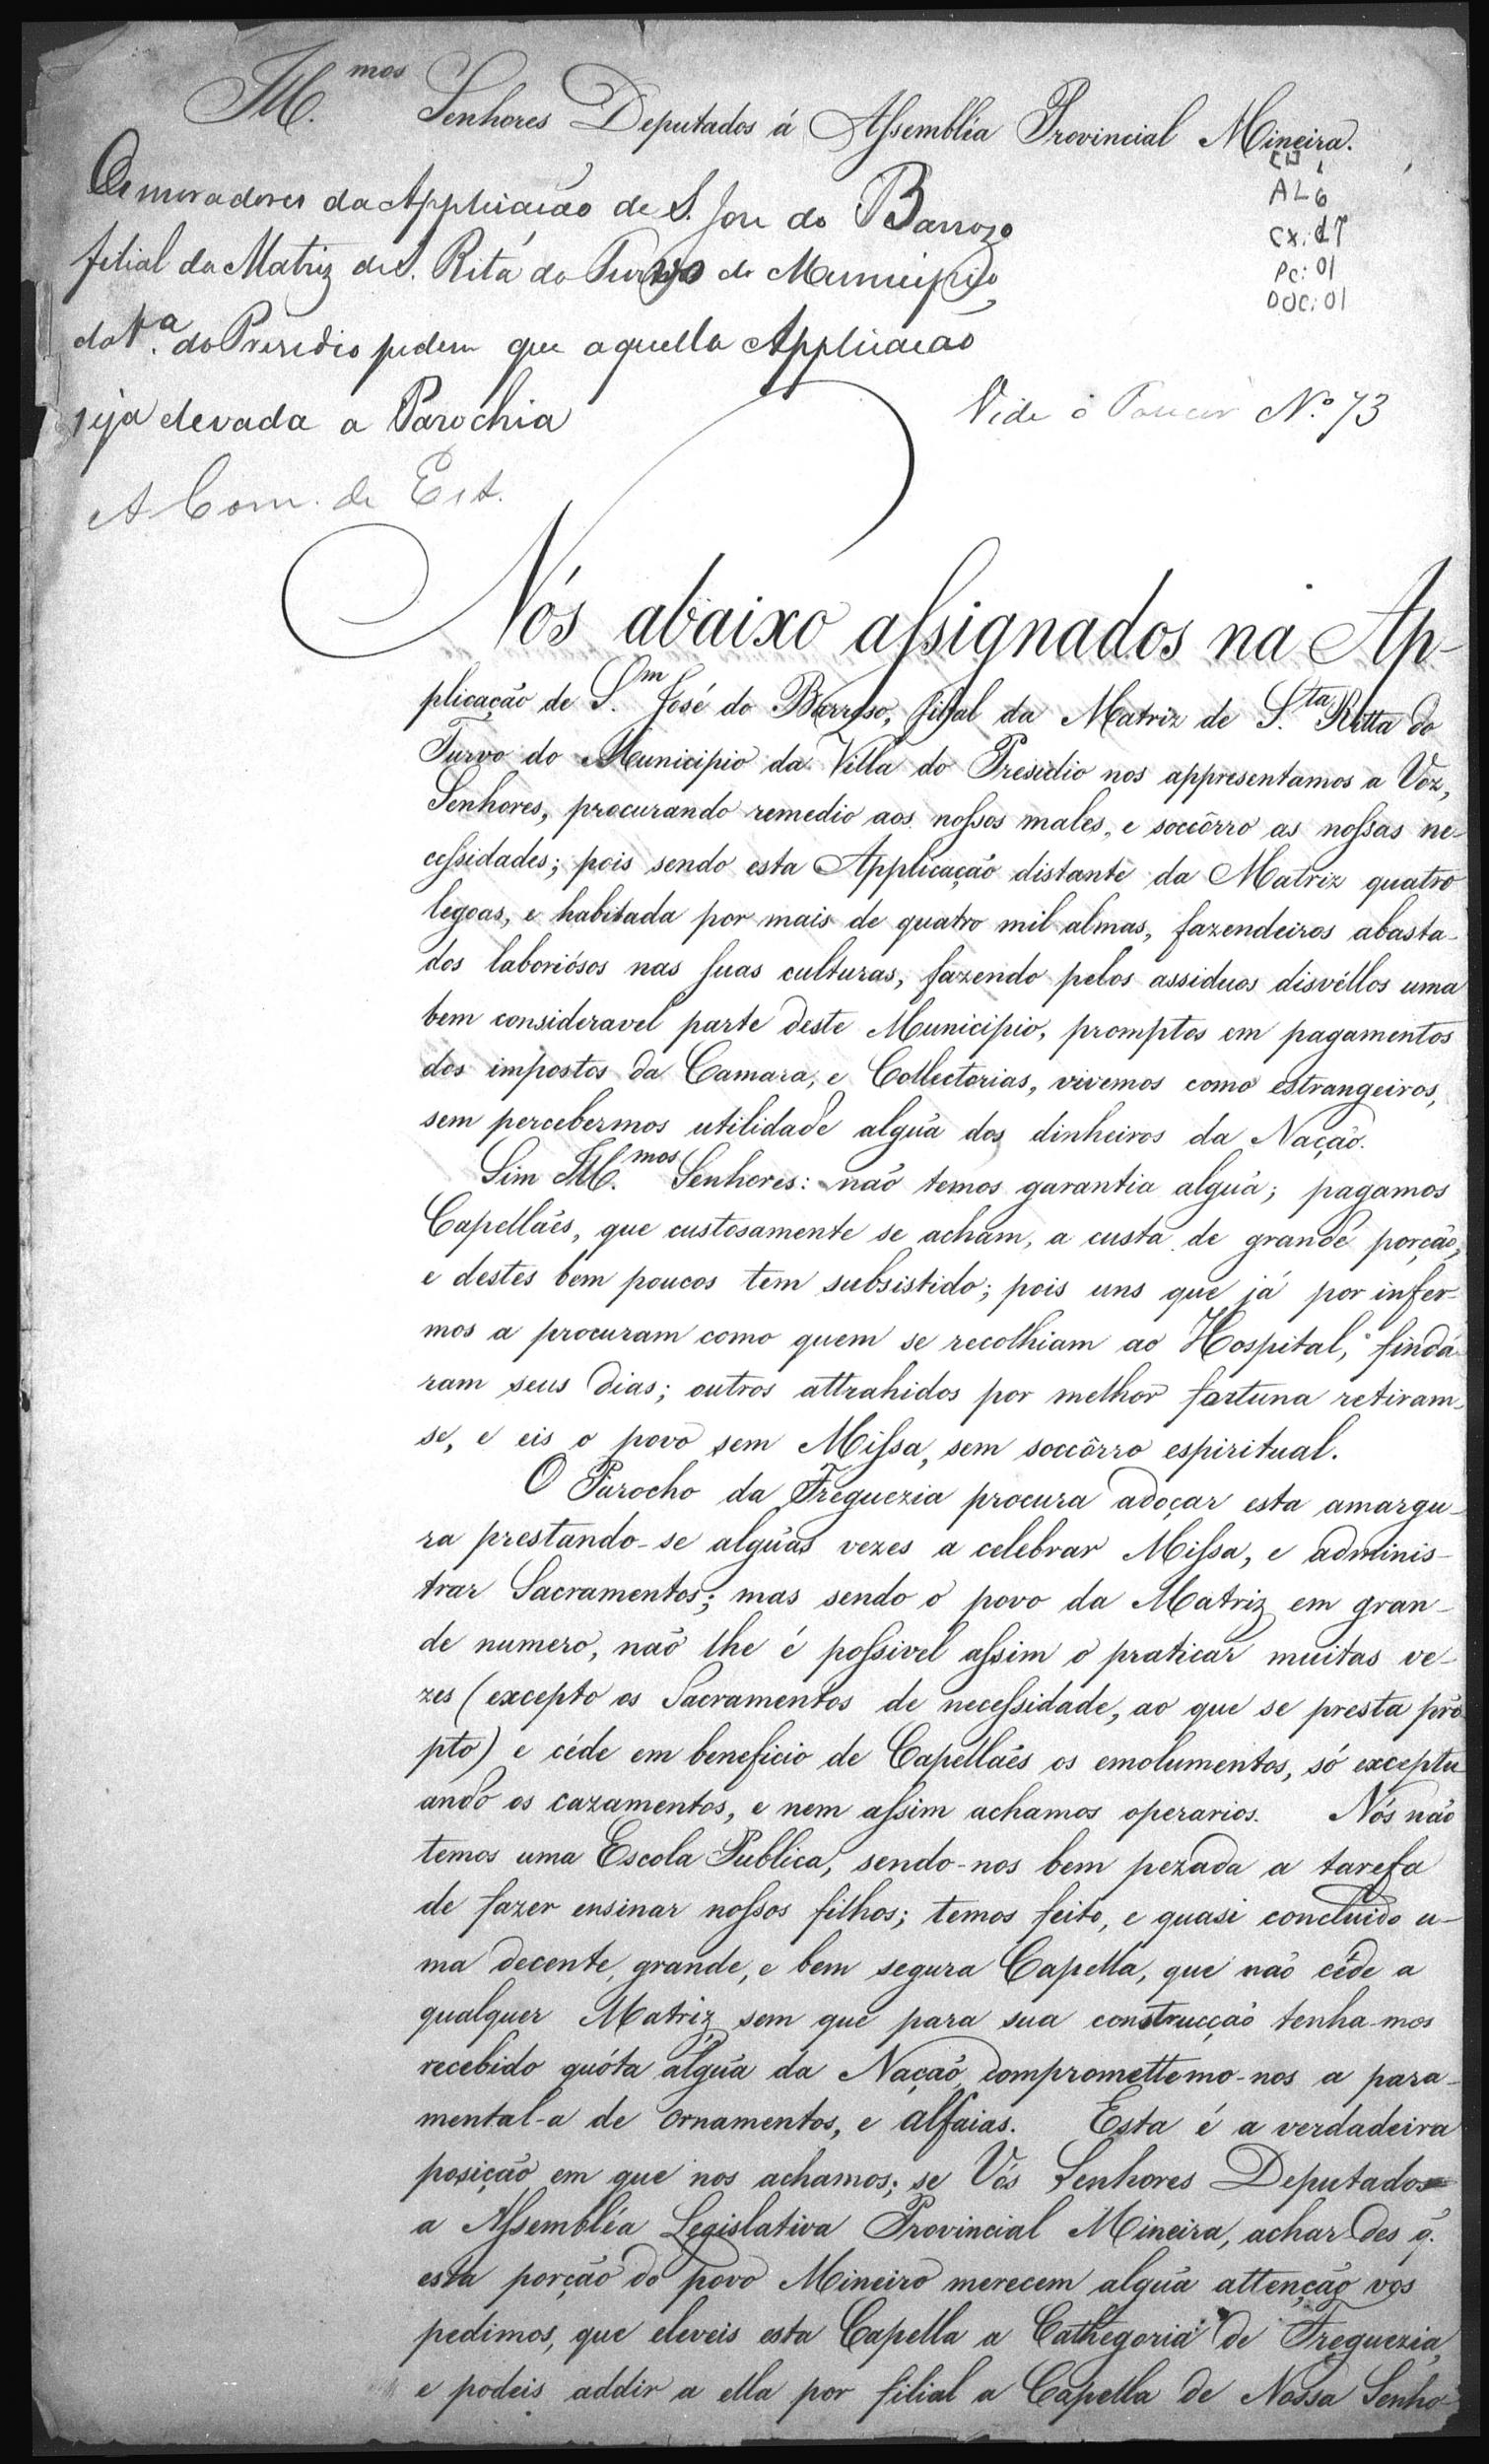 Ill.mos Senhores Deputados á Assembléa Provincial Mineira.
Os moradores da Applicação de S. José do Barroso
filial da Matriz de S. Rita do Turvo do Municipio
da V.a do Presidio pedem que aquella Applicação
seja elevada a Parochia
AL 6
CX: 17
PC: 01
DOC: 01
Vide o Parecer N.o 73
A Com. de Est.
Nós abaixo assignados na Ap-
plicação de S.m José do Barroso, filial da Matriz de S.ta Ritta do
Turvo do Municipio da Villa do Presidio nos appresentamos a Vóz,
Senhores, procurando remedio aos nossos males, e soccôrro as nossas ne-
cessidades; pois sendo esta Applicação distante da Matriz quatro
legoas, e habitada por mais de quatro mil almas, fazendeiros abasta-
dos laboriósos nas suas culturas, fazendo pelos assiduos disvéllos uma
bem consideravel parte deste Municipio, promptos em pagamentos
dos impostos da Camara, e Collectorias, vivemos como estrangeiros,
sem percebermos utilidade algũa dos dinheiros da Nação.
Sim Ill.mos Senhores: não temos garantia algũa; pagamos
Capellães, que custosamente se acham, a custa de grande porção,
e destes bem poucos tem subsistido; pois uns que já por infer-
mos a procuram como quem se recolhiam ao Hospital, findá-
ram seus dias; outros attrahidos por melhor fortuna retiram-
se, e eis o povo sem Missa, sem soccôrro espiritual.
O Parocho da Freguezia procura adoçar esta amargu-
ra prestando-se algũas vezes a celebrar Missa, e adminis-
trar Sacramentos; mas sendo o povo da Matriz em gran-
de numero, não lhe é possivel assim o praticar muitas ve-
zes (excepto os Sacramentos de necessidade, ao que se presta prõ-
pto) e céde em beneficio de Capellães os emolumentos, só exceptu-
ando os cazamentos, e nem assim achamos operarios. Nós não
temos uma Escola Publica, sendo-nos bem pezada a tarefa
de fazer ensinar nossos filhos; temos feito, e quasi concluido u-
ma decente, grande, e bem segura Capella, que não céde a
qualquer Matriz sem que para sua construcção tenha-mos
recebido quóta algũa da Nação compromettemo-nos a para-
mental-a de ornamentos, e alfaias. Esta é a verdadeira
posição em que nos achamos; se Vós Senhores Deputados
a Assembléa Legislativa Provincial Mineira, achardes q̃.
esta porção do povo Mineiro merecem algũa attenção vos
pedimos, que eleveis esta Capella a Cathegoria de Freguezia,
e podeis addir a ella por filial a Capella de Nossa Senho-